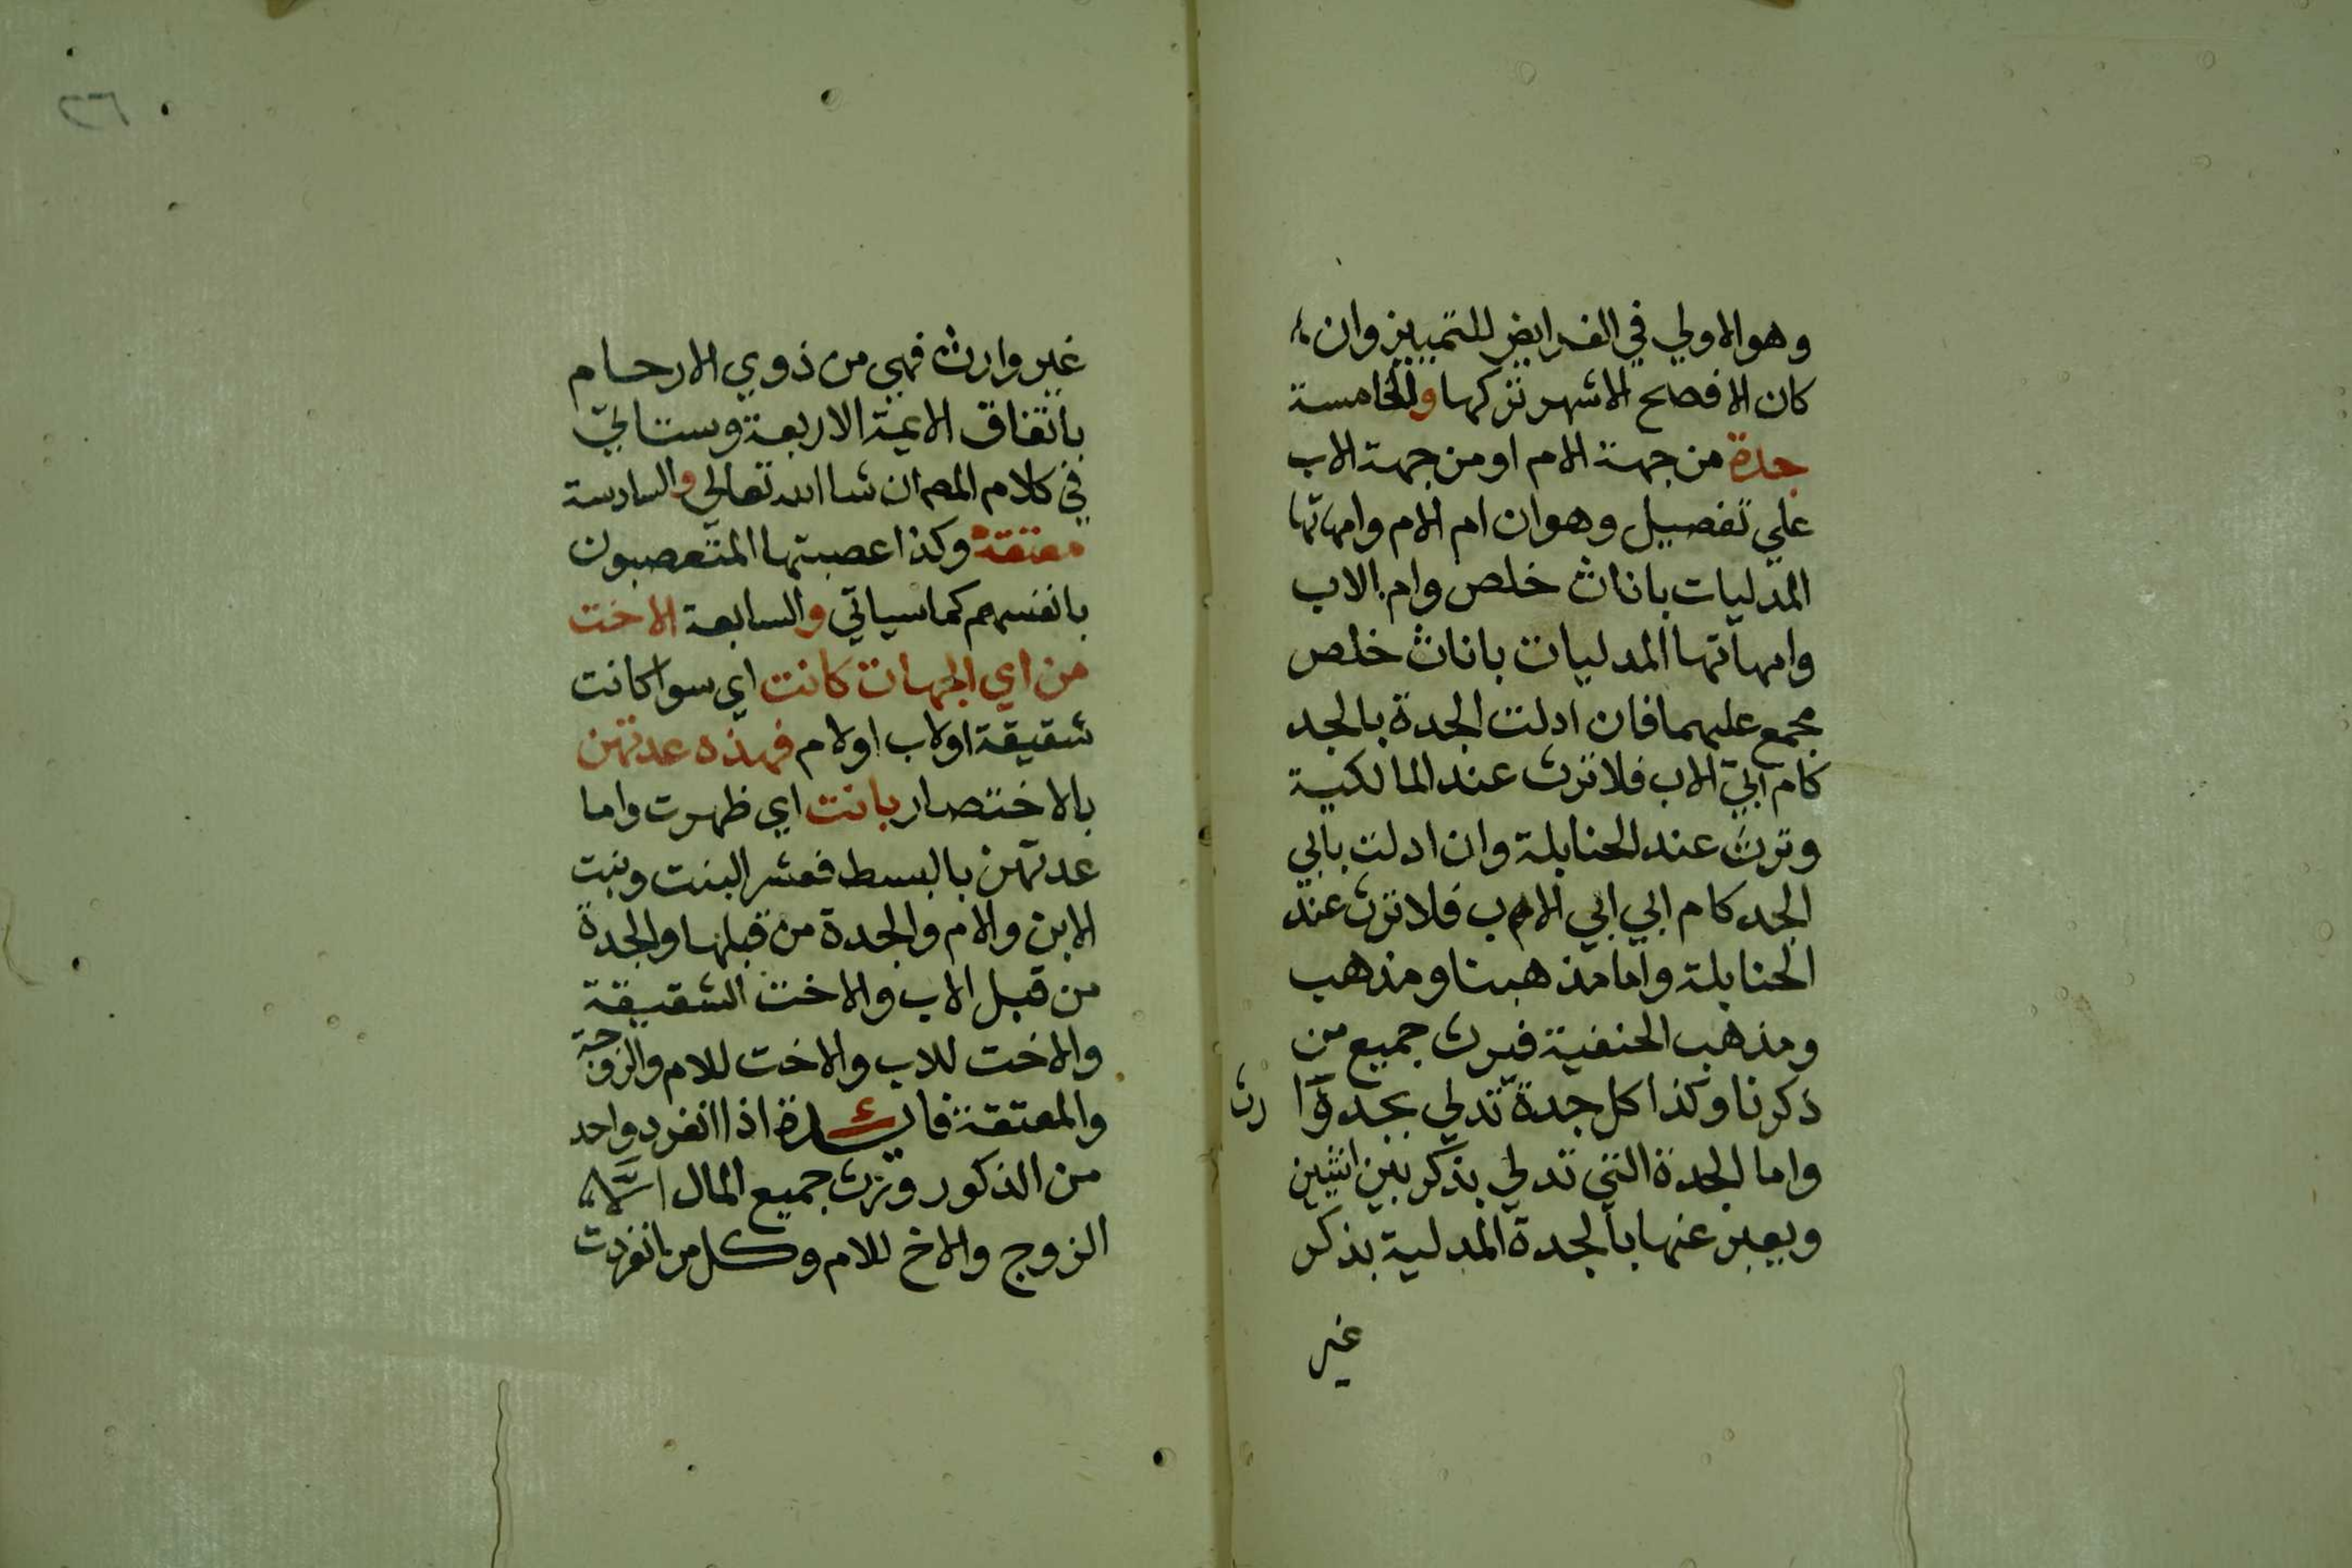 وهو الاولي في الفرايض للتمييز وان
كان الافصح الاشهر تركها والخامسة
جدة من جهة الام او من جهة الاب
علي تفصيل وهو ان ام الام وامهاتها
المدليات باناث خلص وام الاب
وامهاتها المدليات باناث خلص
مجمع عليهما فان ادلت الجدة بالجد
كام ابي الاب فلا ترث عند المالكية
وترث عند الحنابلة وان ادلت بابي
الجد كام ابي ابي الاب فلا ترث عند
الحنابلة واما مذهبنا ومذهب
ومذهب الحنفية فيرث جميع من
ذكرنا وكذا كل جدة تدلي بجد وا
رث
واما الجدة التي تدلي بذكر بين انثيين
ويعبر عنها بالجدة المدلية بذكر
غير
٢٦
غير وارث فهي من ذوي الارحام
باتفاق الايمة الاربعة وستاتي
في كلام المص ان شا الله تعالي والسادسة
معتقة وكذا عصبتها المتعصبون
بانفسهم كما سياتي والسابعة الاخت
من اي الجهات كانت اي سوا كانت
شقيقة او لاب او لام فهذه عدتهن
بالاختصار بانت اي ظهرت واما
عدتهن بالبسط فعشر البنت وبنت
الابن والام والجدة من قبلها والجدة
من قبل الاب والاخت الشقيقة
والاخت للاب والاخت للام والزوجة
والمعتقة فايدة اذا انفرد واحد
من الذكور ورث جميع المال الا
الزوج والاخ للام وكل من انفردت